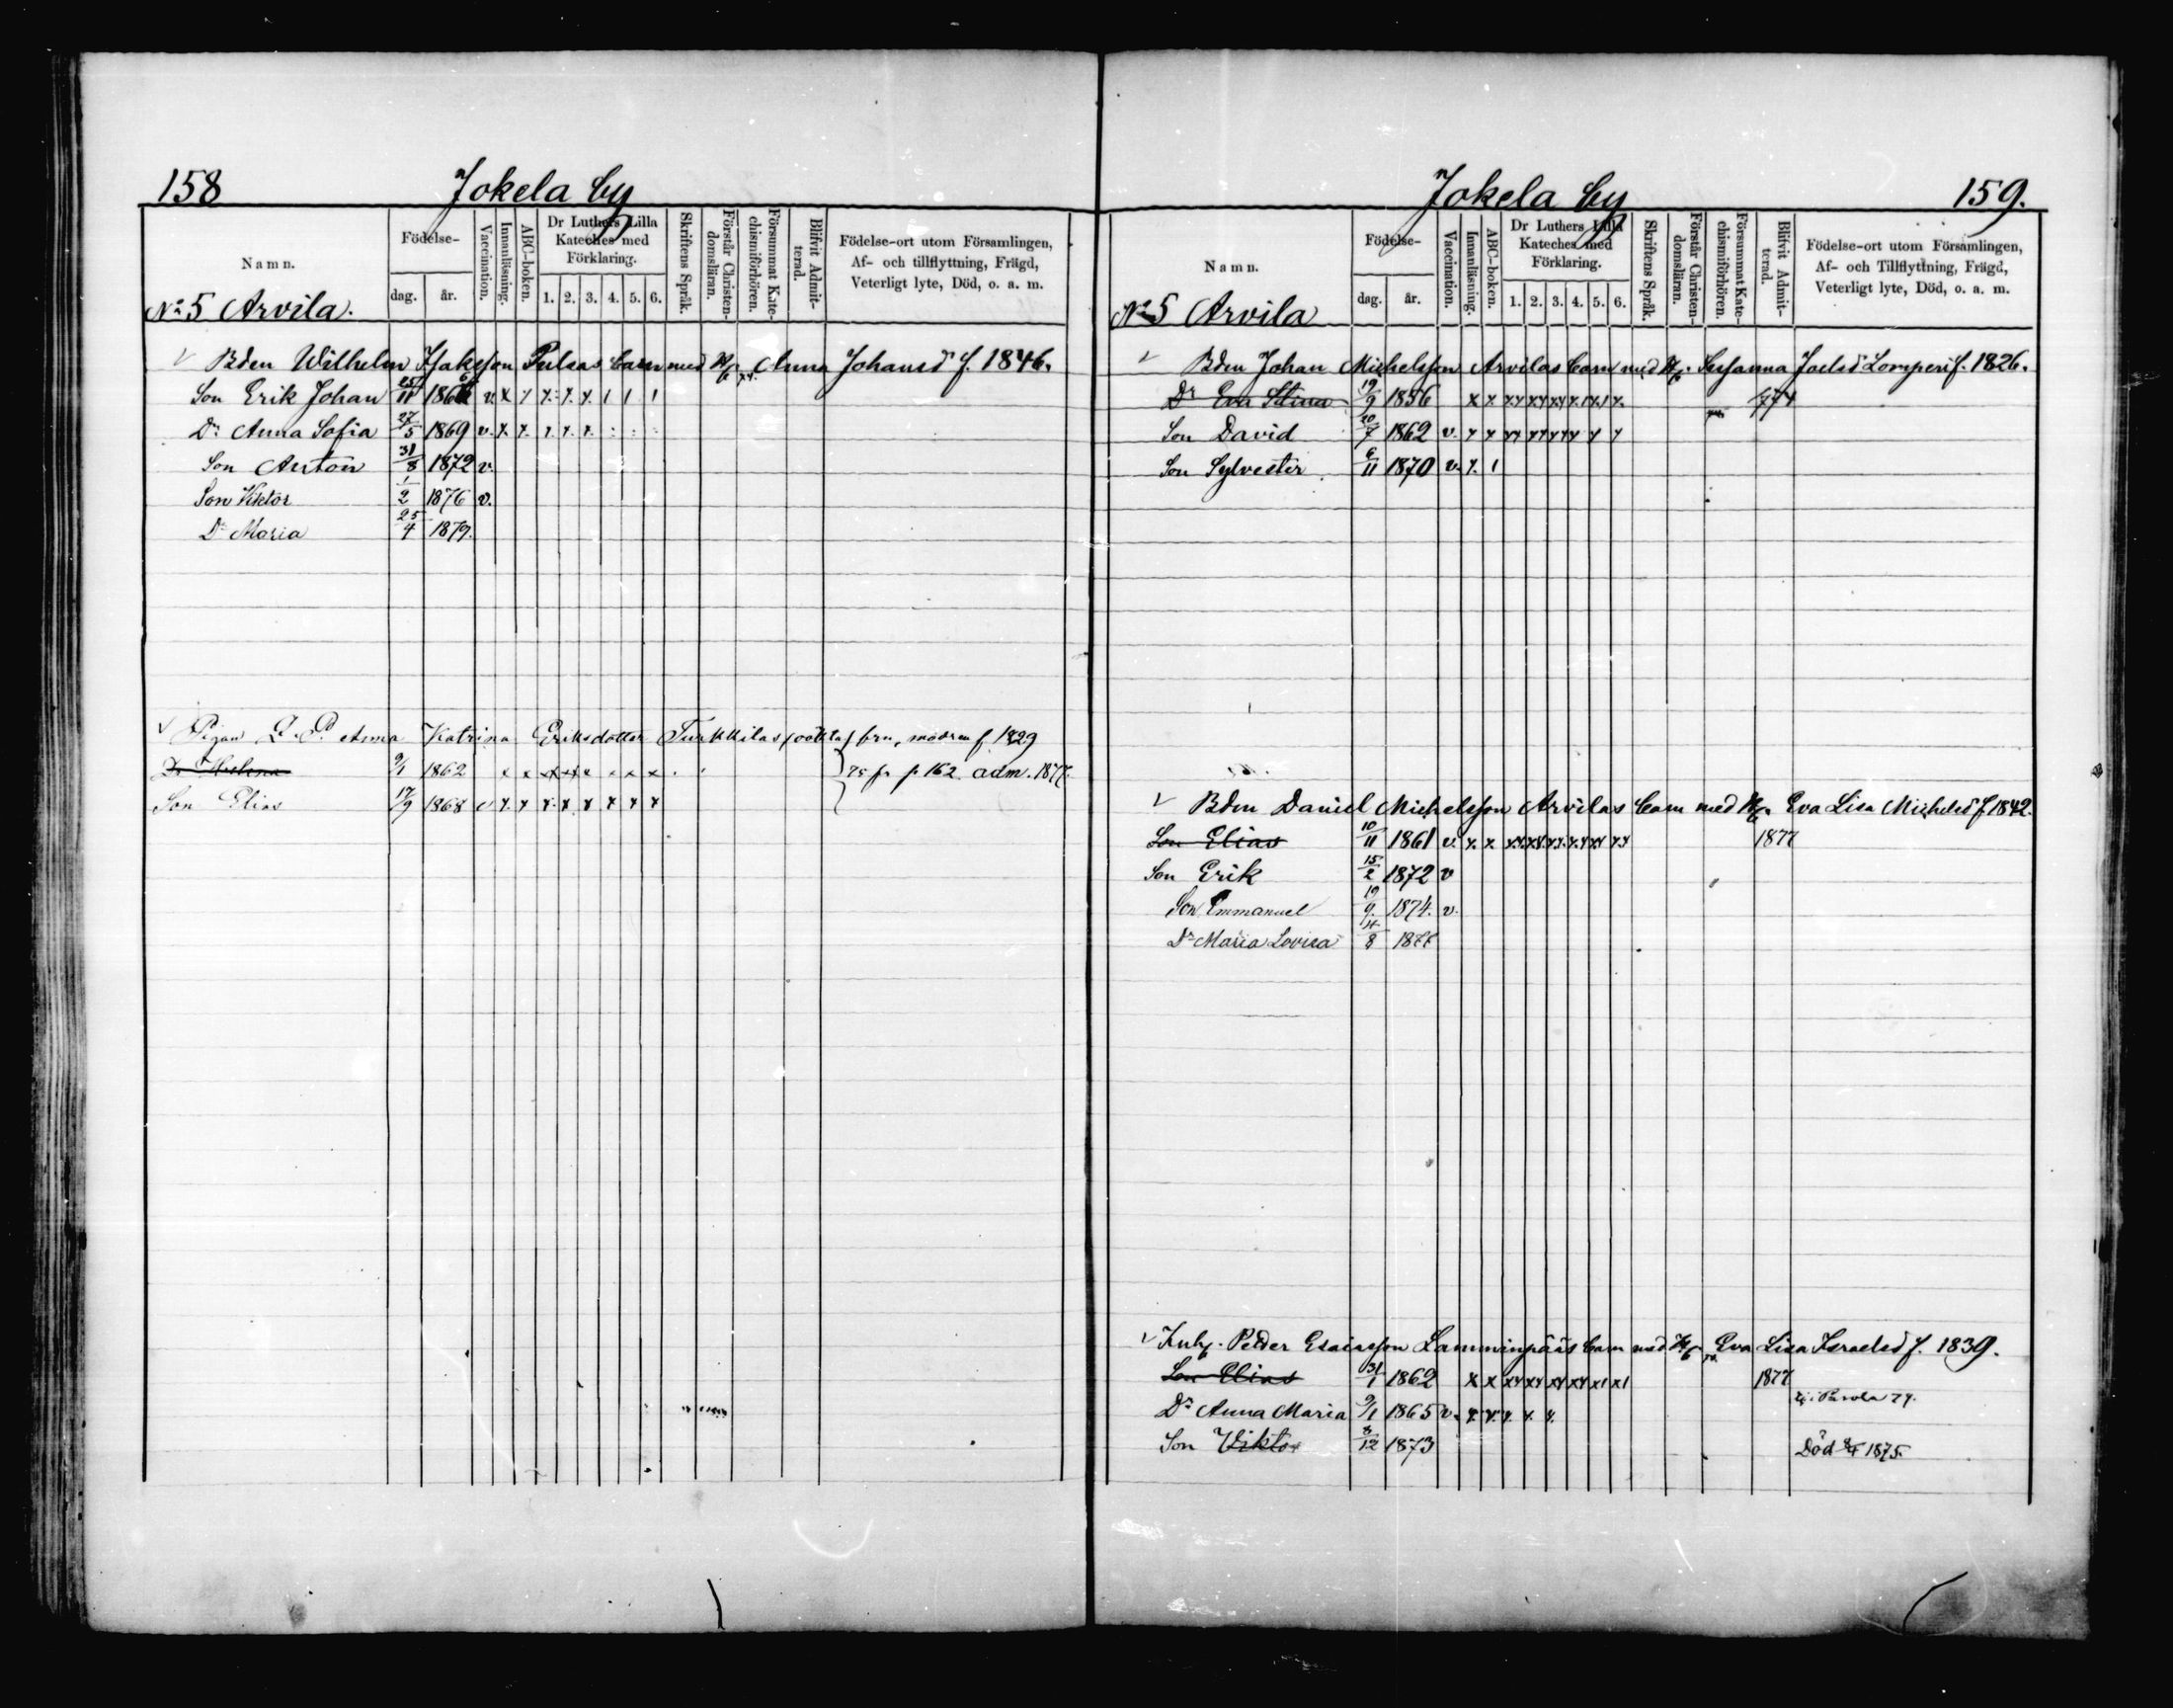 158 Jokela by
Namn. Födelse- dag. år. Vaccination. Innanläsning. ABC-boken. Dr Luthers Lilla Kateches med Förklaring. 1. 2. 3. 4. 5. 6. Skriftens Språk. Förstår Christendomsläran. Försummat Katechismiförhören. Blifvit Admitterad. Födelse-ort utom Församlingen, Af- och tillflyttning, Frägd, Veterligt lyte, Död, o. a. m.
No 5 Arvila.
Bden Wilhelm Isaksson Pulsas barn med Anna Johansd f. 1846.
Son Erik Johan 25/11 186 v. x
Dr Anna Sofia 27/5 1869 v. x x.
Son Anton 31/8 1872 v.
Son Viktor 1/2 1876 v.
Dr Maria 25/4 1879.
Pigan Anna Katrina Eriksdotter Turkkilas oäkta brn, modren f. 1829
Dr Helena 9/1 1862 x x x x x x x x 75 fr p. 162. adm. 1877.
Son Elias 17/9 1868 v x x x x x x x x
Jokela by 159.
Namn. Födelse- dag. år. Vaccination. Innanläsning. ABC-boken. Dr Luthers Lilla Kateches med Förklaring. 1. 2. 3. 4. 5. 6. Skriftens Språk. Förstår Christendomsläran. Försummat Katechismiförhören. Blifvit Admitterad. Födelse-ort utom Församlingen, Af- och Tillflyttning, Frägd, Veterligt lyte, Död, o. a. m.
No 5 Arvila
Bden Johan Michelsson Arvilas barn med Susanna Joelsd Lomperi f. 1826.
Dr Eva Stina 19/9 1856 x x xx xx xx
Son David 20/7 1862 v. x x xx xx xx x x
Son Sylvester. 6/11 1870 v. x. 1
Bden Daniel Michelsson Arvilas barn med Eva Lisa Michelsd f. 1842.
Son Elias 10/11 1861 v. x x xx xx xx xx xx xx 1877
Son Erik 15/2 1872 v
Son Emmanuel 19/9 1874. v.
Dr Maria Lovisa 14/8 1877
Inhy. Petter Esaiasson Lamminpääs barn med Eva Lisa Israelsd f. 1839.
Son Elias 31/1 1862 x x xx xx xx xx x1 x1 1877
Dr Anna Maria 9/1 1865 v. x. x. x. x. x.
Son Viktor 8/12 1873 Död 1875.